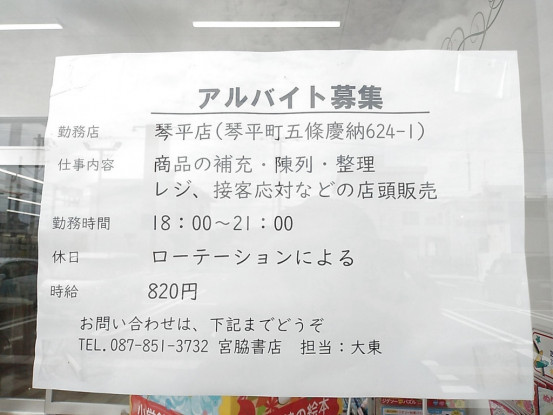 アルバイト募集
勤務店 琴平店(琴平町五條慶納624-1)
仕事内容 商品の補充・陳列・整理
レジ、接客応対などの店頭販売
勤務時間 18：00～21：00
休日 ローテーションによる
時給 820円
お問い合わせは、下記までどうぞ
TEL.087-851-3732 宮脇書店 担当：大東